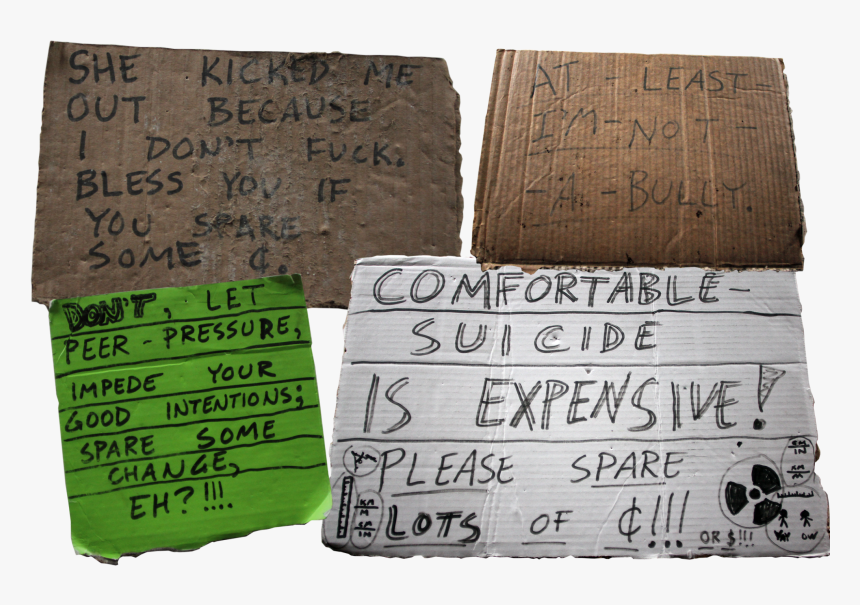 SHE KICKED ME
OUT BECAUSE
I DON'T FUCK.
BLESS YOU IF
YOU SPARE
SOME ¢.
AT - LEAST -
I'M - NOT -
- A - BULLY.
DON'T, LET
PEER - PRESSURE,
IMPEDE YOUR
GOOD INTENTIONS;
SPARE SOME
CHANGE,
EH?!!!.
COMFORTABLE-
SUICIDE
IS EXPENSIVE!
PLEASE SPARE
LOTS OF ¢!!!
OR $!!!